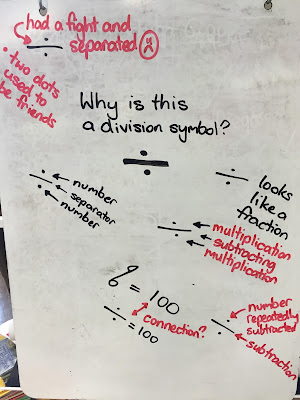 had a fight and
÷ separated ☹
• two dots
used to
be friends
Why is this
a division symbol?
÷
÷ looks
like a
fraction
÷ ← number
← separator
← number
÷ ← multiplication
← subtracting
← multiplication
= 100
connection?
÷ = 100
÷ ← number
repeatedly
subtracted
← subtraction